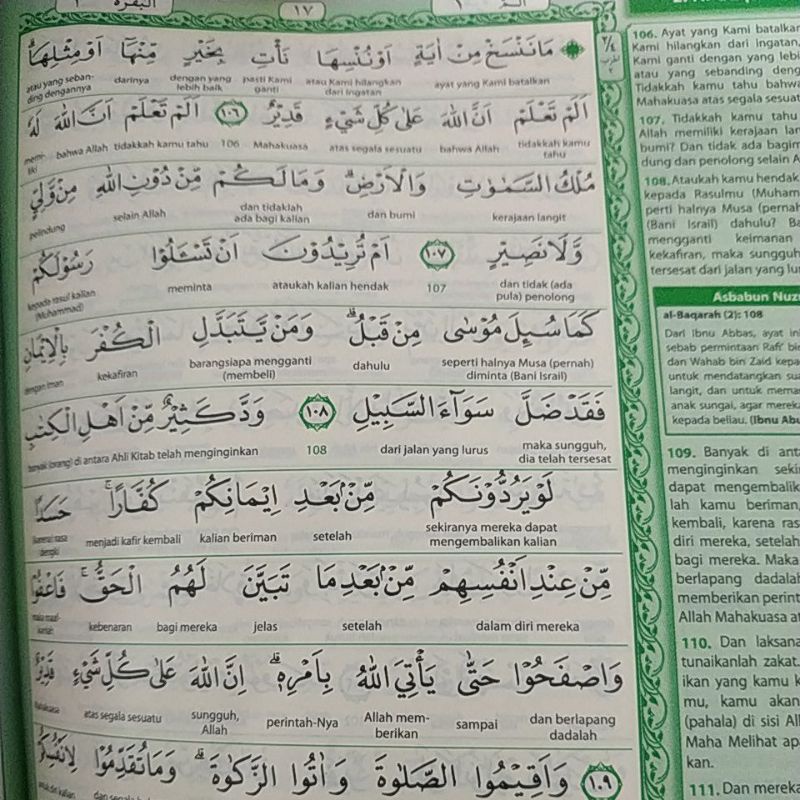 ١٧
البقرة ٢
مَا نَنْسَخْ مِنْ اٰيَةٍ اَوْ نُنْسِهَا نَأْتِ بِخَيْرٍ مِّنْهَآ اَوْ مِثْلِهَا ۗ
ayat yang Kami batalkan atau Kami hilangkan dari ingatan pasti Kami ganti dengan yang lebih baik darinya atau yang seban-ding dengannya
اَلَمْ تَعْلَمْ اَنَّ اللّٰهَ عَلٰى كُلِّ شَيْءٍ قَدِيْرٌ ١٠٦ اَلَمْ تَعْلَمْ اَنَّ اللّٰهَ لَهٗ
tidakkah kamu tahu bahwa Allah atas segala sesuatu Mahakuasa 106 tidakkah kamu tahu bahwa Allah memi-liki
مُلْكُ السَّمٰوٰتِ وَالْاَرْضِۗ وَمَا لَكُمْ مِّنْ دُوْنِ اللّٰهِ مِنْ وَّلِيٍّ
kerajaan langit dan bumi dan tidaklah ada bagi kalian selain Allah pelindung
وَّلَا نَصِيْرٍ ١٠٧ اَمْ تُرِيْدُوْنَ اَنْ تَسْـَٔلُوْا رَسُوْلَكُمْ
dan tidak (ada pula) penolong 107 ataukah kalian hendak meminta kepada rasul kalian (Muhammad)
كَمَا سُىِٕلَ مُوْسٰى مِنْ قَبْلُ ۗ وَمَنْ يَّتَبَدَّلِ الْكُفْرَ بِالْاِيْمَانِ
seperti halnya Musa (pernah) diminta (Bani Israil) dahulu barangsiapa mengganti (membeli) kekafiran dengan iman
فَقَدْ ضَلَّ سَوَاۤءَ السَّبِيْلِ ١٠٨ وَدَّ كَثِيْرٌ مِّنْ اَهْلِ الْكِتٰبِ
maka sungguh, dia telah tersesat dari jalan yang lurus 108 banyak (orang) di antara Ahli Kitab telah menginginkan
لَوْ يَرُدُّوْنَكُمْ مِّنْۢ بَعْدِ اِيْمَانِكُمْ كُفَّارًاۚ حَسَدًا
sekiranya mereka dapat mengembalikan kalian setelah kalian beriman menjadi kafir kembali (karena) rasa dengki
مِّنْ عِنْدِ اَنْفُسِهِمْ مِّنْۢ بَعْدِ مَا تَبَيَّنَ لَهُمُ الْحَقُّ ۚ فَاعْفُوْا
dalam diri mereka setelah jelas bagi mereka kebenaran
وَاصْفَحُوْا حَتّٰى يَأْتِيَ اللّٰهُ بِاَمْرِهٖ ۗ اِنَّ اللّٰهَ عَلٰى كُلِّ شَيْءٍ قَدِيْرٌ
dan berlapang dadalah sampai Allah mem-berikan perintah-Nya sungguh, Allah atas segala sesuatu Mahakuasa
١٠٩ وَاَقِيْمُوا الصَّلٰوةَ وَاٰتُوا الزَّكٰوةَ ۗ وَمَا تُقَدِّمُوْا لِاَنْفُسِكُمْ
106. Ayat yang Kami batalkan
Kami hilangkan dari ingatan,
Kami ganti dengan yang lebi
atau yang sebanding deng
Tidakkah kamu tahu bahw
Mahakuasa atas segala sesuat
107. Tidakkah kamu tahu
Allah memiliki kerajaan lan
bumi? Dan tidak ada bagim
dung dan penolong selain A
108. Ataukah kamu hendak
kepada Rasulmu (Muham
perti halnya Musa (pernah
(Bani Israil) dahulu? Ba
mengganti keimanan
kekafiran, maka sungguh
tersesat dari jalan yang lur
Asbabun Nuzu
al-Baqarah (2): 108
Dari Ibnu Abbas, ayat in
sebab permintaan Rafi' bin
dan Wahab bin Zaid kepa
untuk mendatangkan sua
langit, dan untuk mema
anak sungai, agar mereka
kepada beliau. (Ibnu Abu
109. Banyak di anta
menginginkan sekir
dapat mengembalik
lah kamu beriman,
kembali, karena ras
diri mereka, setelah
bagi mereka. Maka
berlapang dadalal
memberikan perint
Allah Mahakuasa at
110. Dan laksana
tunaikanlah zakat.
ikan yang kamu k
mu, kamu akan
(pahala) di sisi Al
Maha Melihat apa
kan.
111. Dan mereka